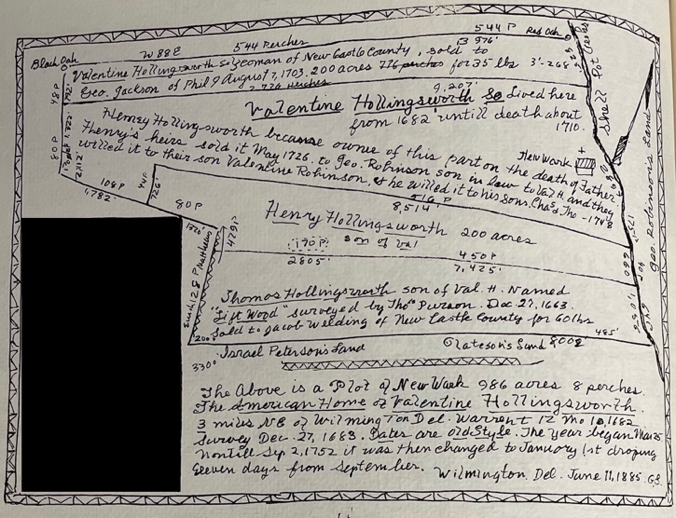 Black Oak W 88 E 544 Perches 544 P Red Oak
Valentine Hollingsworth Sr yeoman of New Castle County, sold to
Geo. Jackson of Phil 9 August 7, 1703. 200 acres 776 perches for 35 lbs
9,207'
3'-268'
Shell Pot Creek
Valentine Hollingsworth So Lived here
from 1682 untill death about
1710.
48 P
792'
80 P
2,112'
Henry Hollingsworth became owner of this part on the death of Father
Henry's heirs sold it May 1726. to Geo. Robinson son in law to Val H. and they
willed it to their son Valentine Robinson, & he willed it to his sons. Chas & Tho -1748
New Wark
108 P
1,782'
726'
80 P
516 P
8,514'
Geo. Robinson's Land
Henry Hollingsworth 200 acres
son of Val
479'
170 P
2805'
450 P
7,425'
128 P
Thomas Hollingsworth son of Val. H. Named
"Lift Wood" surveyed by Thos Purson. Dec 27, 1663.
Sold to Jacob Welding of New Castle County for 60 lbs
200
485'
8002'
330'
Israel Peterson's Land
The Above is a Plot of New Wark 986 acres 8 perches.
The American Home of Valentine Hollingsworth.
3 miles NE of Wilmington Del. Warrent 12 Mo 10, 1682
Survey Dec. 27, 1683. Dates are old Style. The year began Mar 25
Nontill Sep 2, 1752 it was then changed to January 1st droping
Eleven days from September.
Wilmington. Del. June 11, 1885 G.S.